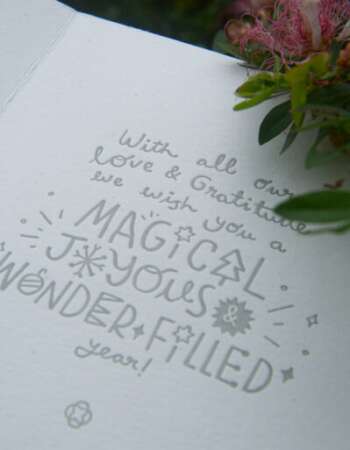 With all our
love & Gratitude
we wish you a
MAGiCAL
JOYOUS &
WONDER-FiLLED
year!